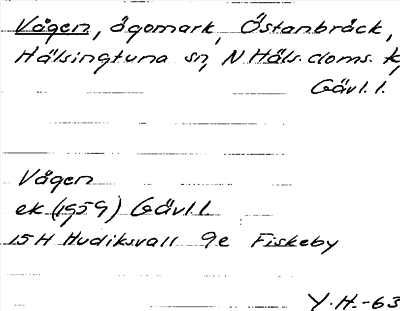 Vågen, ägomark, Östanbräck,
Hälsingtuna sn, N Häls. doms. k,
Gävl. l.
Vågen
ek (1959) Gävl. l.
15H Hudiksvall 9e Fiskeby
Y. H. -63